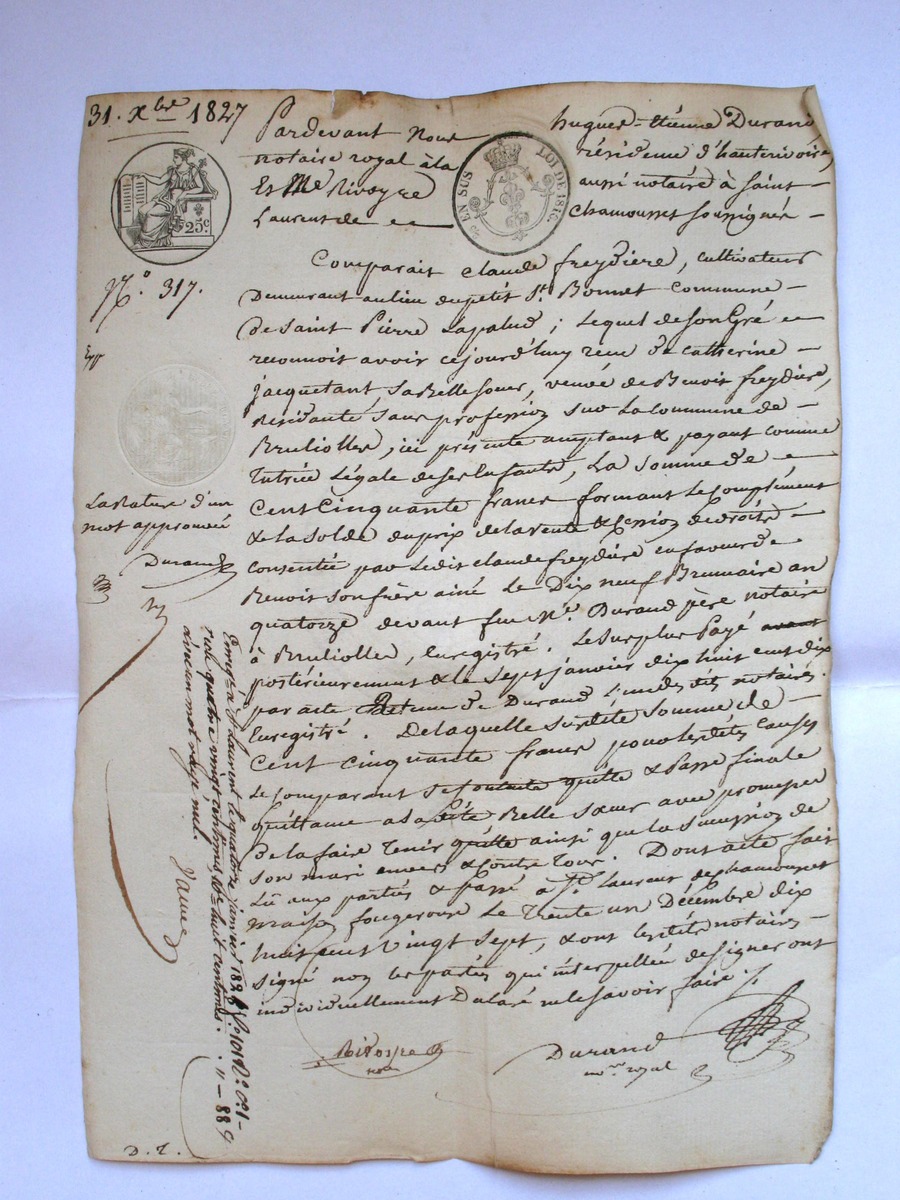 31. Xbre 1827
Pardevant Nous hugues-Etienne Durand,
notaire royal à la résidence d'hauterivoire,
Et Me Rivoyre aussi notaire à Saint
Laurent de Chamousset soussignés
25c.
EN SUS LOI DE 1816.
No. 317.
Comparait Claude freydiere, cultivateur
Demeurant au lieu du petit St. Bonnet Commune
de Saint Pierre Lapalud ; Lequel de son Gré
reconnoit avoir cejourd'huy reçu de Catherine
jacquetant, sa Belle soeur, veuve de Benoit freydiere,
Résidante sans profession sur La Commune de
Bruliolles, ici présente acceptant & payant comme
Tutrice Légale de ses Enfants, La somme de
Cent Cinquante francs formant Le Complément
& la solde du prix de la vente & Cession de droits
consentie par Ledit claude freydiere en faveur de
Benoit son frère ainé Le Dix neuf Brumaire an
quatorze devant feu Me. Durand père notaire
à Bruliolles, Enregistré. Le surplus Payé avant
postérieurement & le sept janvier dix huit cent dix
par acte Retenu de Durand L'un desdits notaires.
Enregistré. De laquelle susdite somme de
Cent cinquante francs pour lesdites causes
Le Comparant se Contente quitte & Passe finale
quittance à sadite Belle soeur avec promesse
De la faire Tenir quitte ainsi que La succession de
son mari envers & contre Tous. Dont acte fait
Lû aux parties & passé à St. Laurent de chamousset
maison fougerouse Le Trente un Décembre dix
huit cent vingt sept, & ont lesdits notaires
signé non les parties qui interpellées de signer ont
individuellement Déclaré ne le savoir faire ./.
Rivoyre
nore
Durand
nore royal
La Rature d'un
mot approuvée
Durand
Enregé. à St. Laurent le quatre janvier 1828
quatre vingt centimes
un mot rayé nul.
D. T.